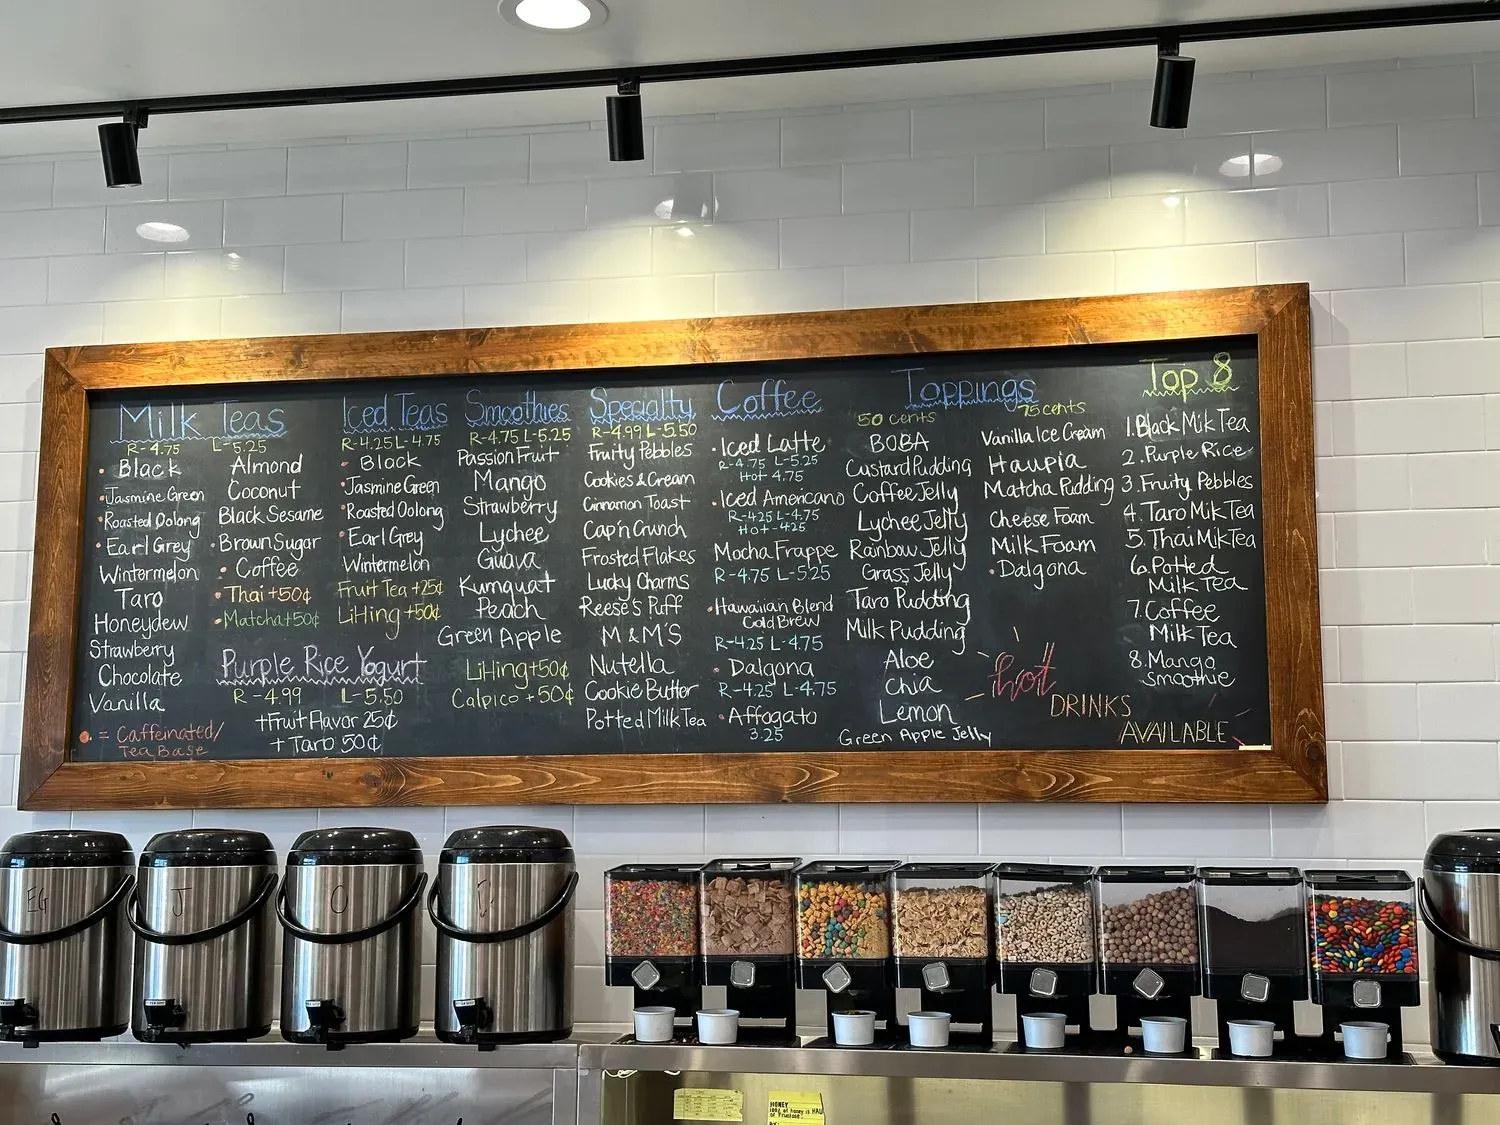 Milk Teas
R-4.75 L-5.25
Black
Jasmine Green
Roasted Oolong
Earl Grey
Wintermelon
Taro
Honeydew
Strawberry
Chocolate
Vanilla
= Caffeinated/
Tea Base
Almond
Coconut
Black Sesame
Brown Sugar
Coffee
Thai +50¢
Matcha +50¢
Purple Rice Yogurt
R-4.99 L-5.50
+Fruit Flavor 25¢
+ Taro 50¢
Iced Teas
R-4.25 L-4.75
Black
Jasmine Green
Roasted Oolong
Earl Grey
Wintermelon
Fruit Tea +25¢
LiHing +50¢
Smoothies
R-4.75 L-5.25
Passion Fruit
Mango
Strawberry
Lychee
Guava
Kumquat
Peach
Green Apple
LiHing +50¢
Calpico +50¢
Specialty
R-4.99 L-5.50
Fruity Pebbles
Cookies & Cream
Cinnamon Toast
Cap'n Crunch
Frosted Flakes
Lucky Charms
Reese's Puff
M & M'S
Nutella
Cookie Butter
Potted Milk Tea
Coffee
Iced Latte
R-4.75 L-5.25
Hot 4.75
Iced Americano
R-4.25 L-4.75
Hot -4.25
Mocha Frappe
R-4.75 L-5.25
Hawaiian Blend
Cold Brew
R-4.25 L-4.75
Dalgona
R-4.25 L-4.75
Affogato
3.25
Toppings
50 cents
BOBA
Custard Pudding
Coffee Jelly
Lychee Jelly
Rainbow Jelly
Grass Jelly
Taro Pudding
Milk Pudding
Aloe
Chia
Lemon
Green Apple Jelly
75 cents
Vanilla Ice Cream
Haupia
Matcha Pudding
Cheese Foam
Milk Foam
Dalgona
hot
DRINKS
AVAILABLE
Top 8
1. Black Milk Tea
2. Purple Rice
3. Fruity Pebbles
4. Taro Milk Tea
5. Thai Milk Tea
6. Potted
Milk Tea
7. Coffee
Milk Tea
8. Mango
Smoothie
EG
J
O
HONEY